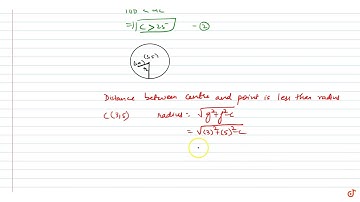 ⇒ C > 25 - ②
(3,5)
Distance between centre and point is less then radius
C(3,5) radius = √g²+f²-c
= √(3)²+(5)²-c